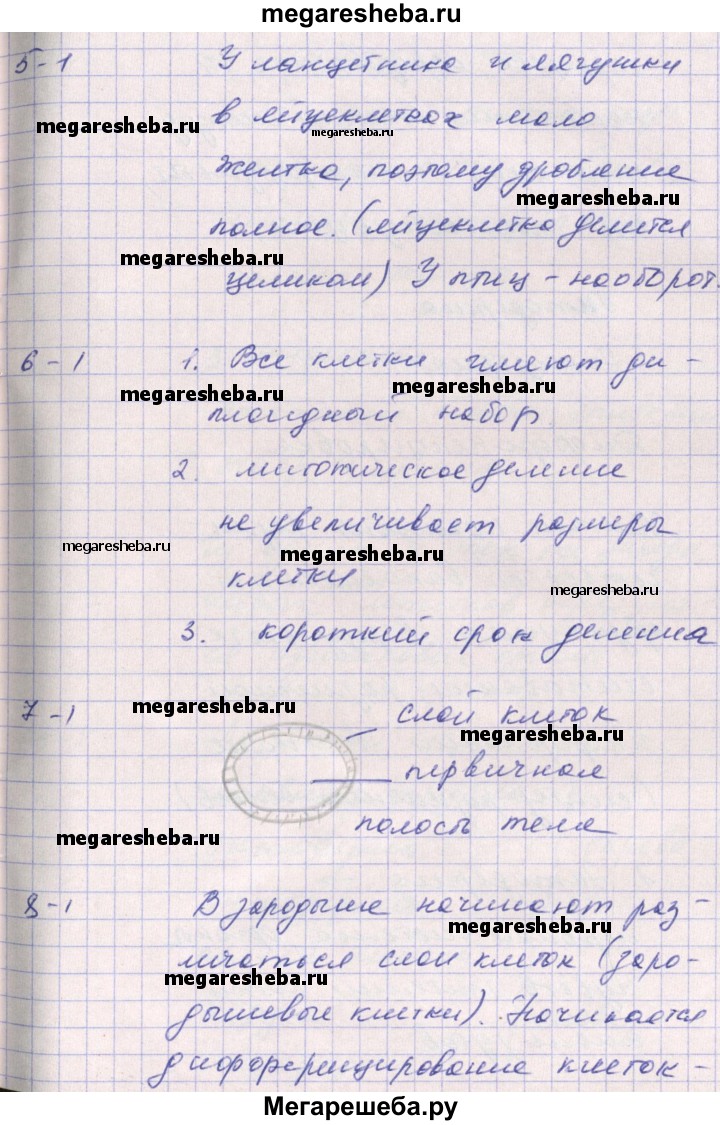 megaresheba.ru
5-1 У ланцетника и лягушки
в яйцеклетках мало
megaresheba.ru
megaresheba.ru
желтка, поэтому дробление
megaresheba.ru
полное. (яйцеклетка делится
megaresheba.ru
целиком) У птиц - наоборот.
6-1 1. Все клетки имеют ди-
megaresheba.ru
megaresheba.ru
плоидный набор.
2. митотическое деление
не увеличивает размеры
megaresheba.ru
megaresheba.ru
клетки
megaresheba.ru
3. короткий срок деления
7-1 слой клеток
megaresheba.ru
megaresheba.ru
первичная
полость тела
megaresheba.ru
8-1 В зародыше начинают раз-
megaresheba.ru
личаться слои клеток (заро-
megaresheba.ru
дышевые клетки). Начинается
дифференцирование клеток -
Мегарешеба.ру